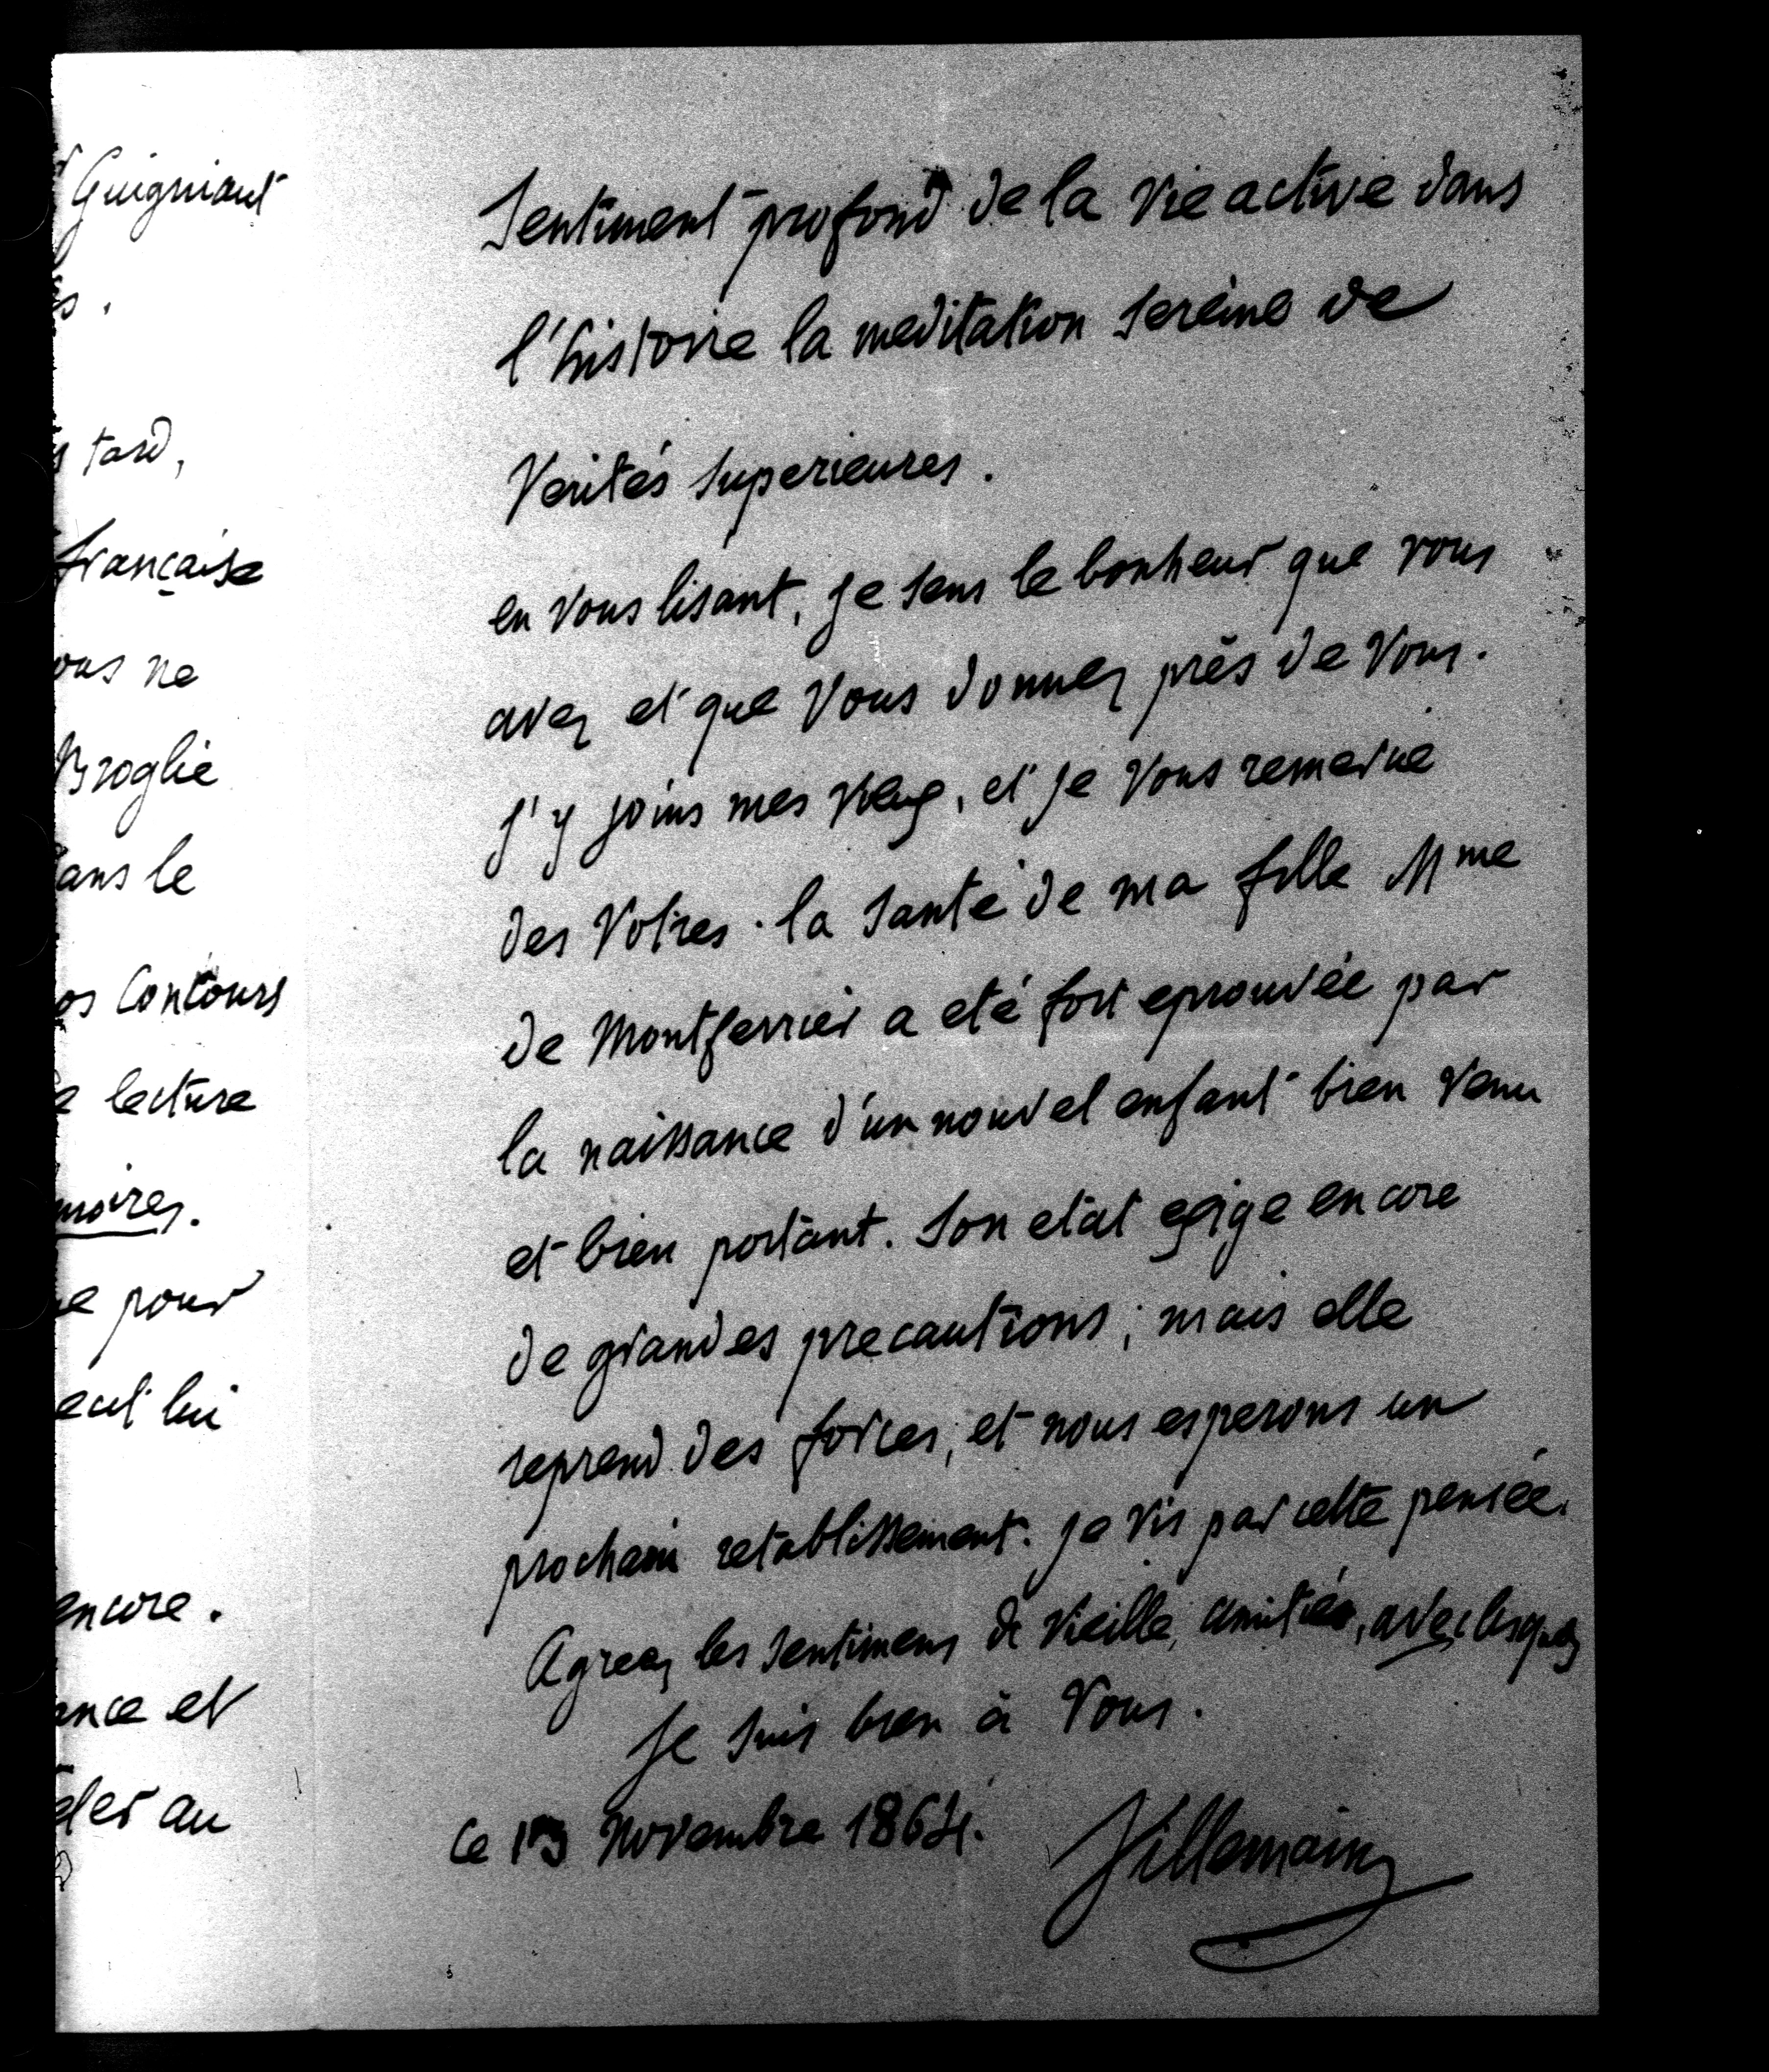 Guigniaut
tard,
française
ne
Broglie
le
Contours
lecture
pour
lui
encore.
et
au
Sentiment profond de la vie active dans
l'histoire la meditation sereine de
Verités superieures.
en vous lisant, je sens le bonheur que vous
avez et que vous donnez près de vous.
j'y joins mes vœux, et je vous remercie
des votres. la santé de ma fille Mme
de Montferrier a eté fort eprouvée par
la naissance d'un nouvel enfant bien venu
et bien portant. Son etat exige encore
de grandes precautions; mais elle
reprend des forces, et nous esperons un
prochain retablissement. je vis par cette pensée.
Agreez les sentimens de vieille amitié, avec lesquels
je suis bien à vous.
ce 13 Novembre 1864.
Villemain